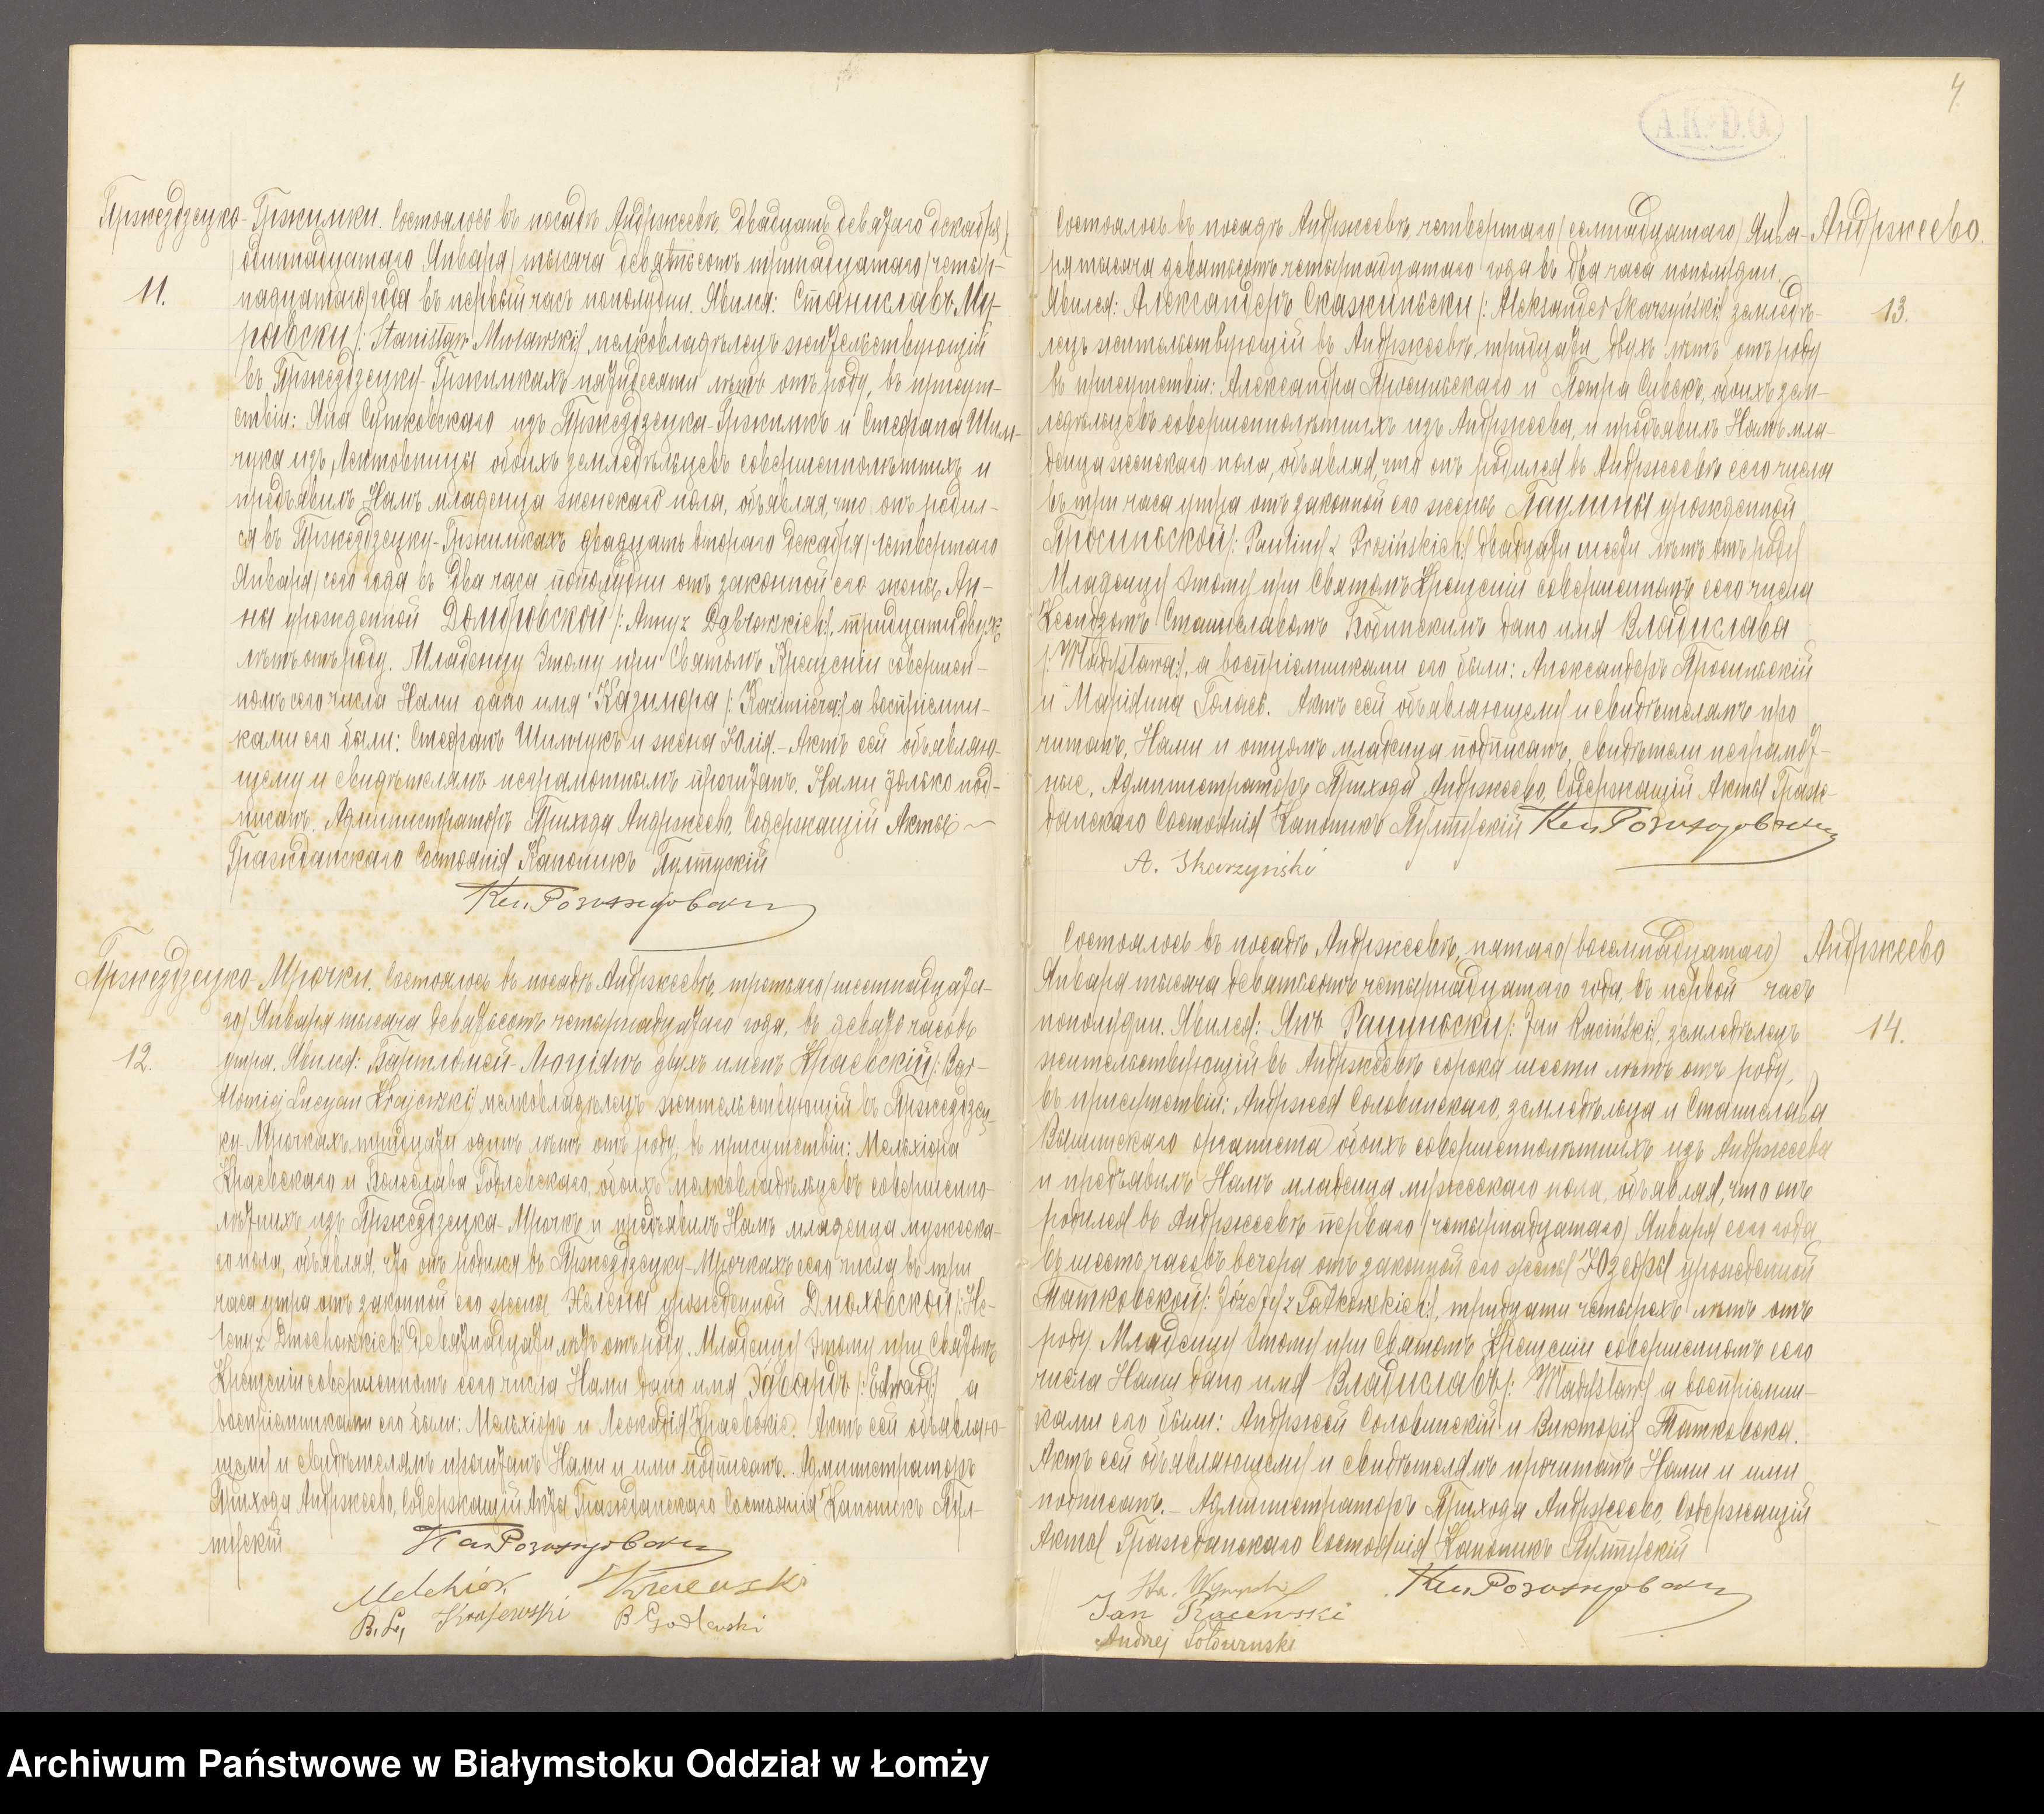 Пржездзецко-Гржимки. Состоялось въ посадѣ Андржеевѣ, двадцать девятаго декабря /
11.
/ одиннадцатаго Января / тысяча девятьсотъ тринадцатаго / четыр-
надцатаго / года въ первый часъ пополудни. Явился: Станиславъ Му-
равски /: Stanisław Murawski :/ мелковладѣлецъ жительствующій
въ Пржездзецку-Гржимкахъ пятидесяти лѣтъ отъ роду, въ присут-
ствіи: Яна Сутковскаго изъ Пржездзецка-Гржимкъ и Стефана Шим-
чука изъ обоихъ земледѣльцевъ совершеннолѣтнихъ и
предъявилъ Намъ младенца женскаго пола, объявляя, что онъ родил-
ся въ Пржездзецку-Гржимкахъ двадцать второго Декабря / четвертаго
Января / сего года въ два часа пополудни отъ законной его жены Ан-
на урожденной Домбровской /: Anny z Dąbrowskich :/, тридцати двухъ
лѣтъ отъ роду. Младенцу этому при Святомъ Крещеніи совершен-
номъ сего числа Нами дано имя Казимѣра /: Kazimiera :/ а воспріемни-
ками его были: Стефанъ Шимчукъ и жена Юлія. - Актъ сей объявляю-
щему и свидѣтелямъ неграмотнымъ прочитанъ, Нами только под-
писанъ. Администраторъ Прихода Андржеево, Содержащій Акты
Гражданскаго Состоянія Каноникъ Пултускій
Пржездзецко-Мрочки. Состоялось въ посадѣ Андржеевѣ, третьяго / шестнадцата-
го / Января тысяча девятьсотъ четырнадцатаго года, въ девять часовъ
12.
утра. Явился: Бартломей-Люціянъ двухъ именъ Краевскій /: Bar-
tłomiej Lucyan Krajewski :/ мелковладѣлецъ жительствующій въ Пржездзец-
ку-Мрочкахъ, тридцати одинъ лѣтъ отъ роду, въ присутствіи: Мельхіора
Краевскаго и Болеслава Годлевскаго, обоихъ мелковладѣльцевъ совершенно-
лѣтнихъ изъ Пржездзецка-Мрочкъ и предъявилъ Намъ младенца мужеска-
го пола, объявляя, что онъ родился въ Пржездзецку-Мрочкахъ сего числа въ три
часа утра отъ законной его жены Хелены урожденной Дмоховской /: He-
leny z Dmochowskich :/ девятнадцати лѣтъ отъ роду. Младенцу этому при Святомъ
Крещеніи совершенномъ сего числа Нами дано имя Эдвардъ /: Edward :/ а
воспріемниками его были: Мельхіоръ и Леокадія Краевскіе. Актъ сей объявляю-
щему и свидѣтелямъ прочитанъ Нами и ими подписанъ. Администраторъ
Прихода Андржеево, Содержащій Акты Гражданскаго Состоянія Каноникъ Пул-
тускій
Melchior Krajewski
B. L. Krajewski B Godlewski
4
A.K.D.O.
Состоялось въ посадѣ Андржеевѣ, четвертаго / семнадцатаго / Янва-
Андржеево.
ря тысяча девятьсотъ четырнадцатаго года въ два часа пополудни.
13.
Явился: Александеръ Скажиньски /: Aleksander Skarzyński :/ земледѣ-
лецъ жительствующій въ Андржеевѣ тридцати двухъ лѣтъ отъ роду
въ присутствіи: Александра Просиньскаго и Петра Сивекъ, обоихъ зем-
ледѣльцевъ совершеннолѣтнихъ изъ Андржеева, и предъявилъ Намъ мла-
денца женскаго пола, объявляя, что онъ родился въ Андржеевѣ сего числа
въ три часа утра отъ законной его жены Паулины урожденной
Просиньской /: Pauliny z Prosińskich :/ двадцати шести лѣтъ отъ роду
Младенцу этому при Святомъ Крещеніи совершенномъ сего числа
Ксендзомъ Станиславомъ дано имя Владислава
/: Władysława :/, а воспріемниками его были: Александеръ Просиньскій
и Маріянна Голасъ. Актъ сей объявляющему и свидѣтелямъ про
читанъ, Нами и отцомъ младенца подписанъ, свидѣтели неграмот-
ные. Администраторъ Прихода Андржеево, Содержащій Акты Граж-
данскаго Состоянія Каноникъ Пултускій
A. Skarzyński
Состоялось въ посадѣ Андржеевѣ, пятаго / восемнадцатаго /
Андржеево
Января тысяча девятьсотъ четырнадцатаго года, въ первой часъ
14.
пополудни. Явился: Янъ Рациньски /: Jan Raciński :/, земледѣлецъ
жительствующій въ Андржеевѣ сорока шести лѣтъ отъ роду,
въ присутствіи: Андржея Соловинскаго, земледѣльца и Станислава
органиста обоихъ совершеннолѣтнихъ изъ Андржеева
и предъявилъ Намъ младенца мужескаго пола, объявляя, что онъ
родился въ Андржеевѣ перваго / четырнадцатаго / Января сего года
въ шесть часовъ вечера отъ законной его жены Юзефы урожденной
Татковской /: Józefy z Tatkowskich :/, тридцати четырехъ лѣтъ отъ
роду. Младенцу этому при Святомъ Крещеніи совершенномъ сего
числа Нами дано имя Владиславъ /: Władysław :/ а воспріемни-
ками его были: Андржей Соловинскій и Викторія Татковска.
Актъ сей объявляющему и свидѣтелямъ прочитанъ Нами и ими
подписанъ. - Администраторъ Прихода Андржеево, Содержащій
Акты Гражданскаго Состоянія Каноникъ Пултускій
Jan Racewski
Andrzej
Archiwum Państwowe w Białymstoku Oddział w Łomży